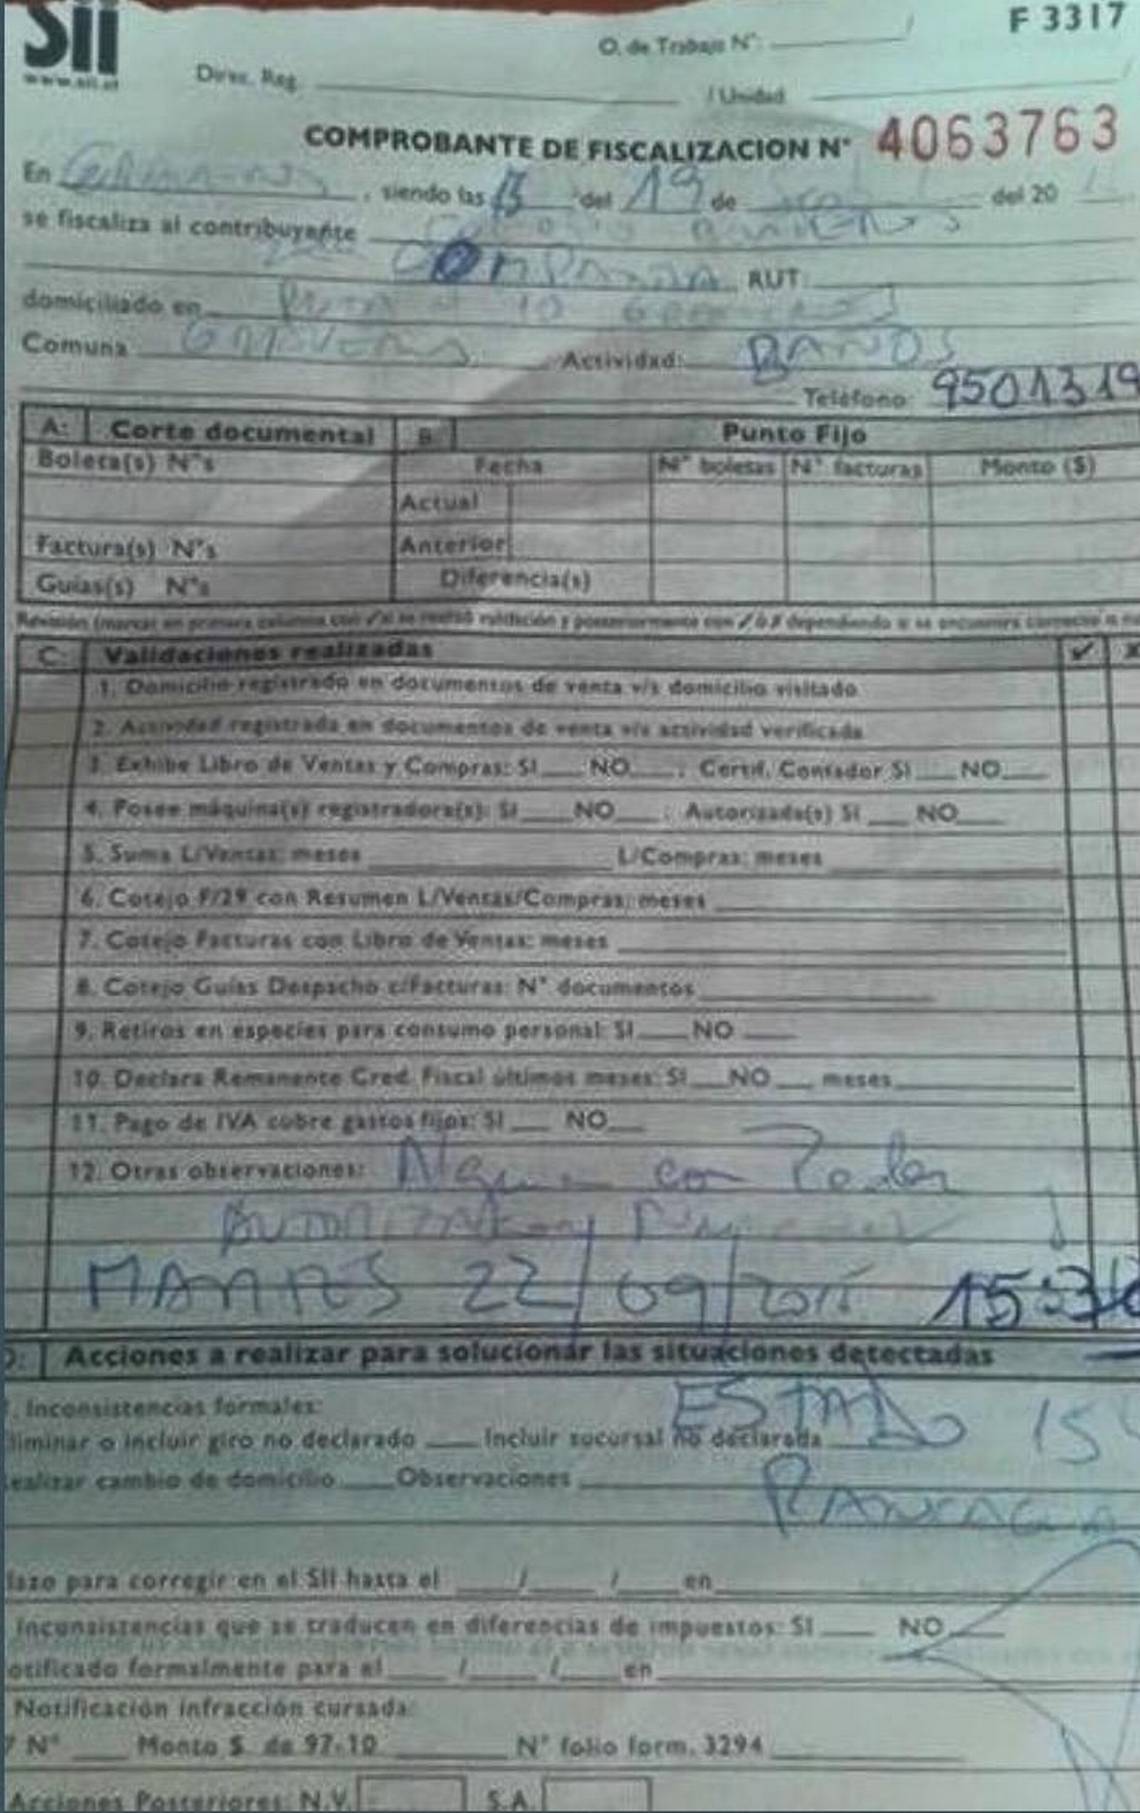 sii
F 3317
www.sii.cl
O. de Trabajo N°:
Direc. Reg. / Unidad
COMPROBANTE DE FISCALIZACION N° 4063763
En , siendo las 13 del 19 de del 20
se fiscaliza al contribuyente
COMPAÑIA RUT:
domiciliado en
Comuna Actividad: BAÑOS
Teléfono: 9501319
A: Corte documental B: Punto Fijo
Boleta(s) N°s Fecha N° boletas N° facturas Monto ($)
Actual
Factura(s) N°s Anterior
Guías(s) N°s Diferencia(s)
Revisión (marcar en primera columna con
C: Validaciones realizadas ✓ X
1. Domicilio registrado en documentos de venta v/s domicilio visitado
2. Actividad registrada en documentos de venta v/s actividad verificada
3. Exhibe Libro de Ventas y Compras: SI NO : Certif. Contador SI NO
4. Posee máquina(s) registradora(s): SI NO : Autorizada(s) SI NO
5. Suma L/Ventas: meses L/Compras: meses
6. Cotejo F/29 con Resumen L/Ventas/Compras: meses
7. Cotejo Facturas con Libro de Ventas: meses
8. Cotejo Guías Despacho c/Facturas: N° documentos
9. Retiros en especies para consumo personal: SI NO
10. Declara Remanente Cred. Fiscal últimos meses: SI NO meses
11. Pago de IVA cubre gastos fijos: SI NO
12. Otras observaciones: Alguien con Poder
MARTES 22/09/2015 15:30
D: Acciones a realizar para solucionar las situaciones detectadas
. Inconsistencias formales: ESTADO 15
liminar o incluir giro no declarado Incluir sucursal no declarada
ealizar cambio de domicilio Observaciones RANCAGUA
lazo para corregir en el SII hasta el / / en
Inconsistencias que se traducen en diferencias de impuestos: SI NO
otificado formalmente para el / / en
Notificación infracción cursada:
N° Monto $ de 97-10 N° folio form. 3294
Acciones Posteriores: N.V. S.A.